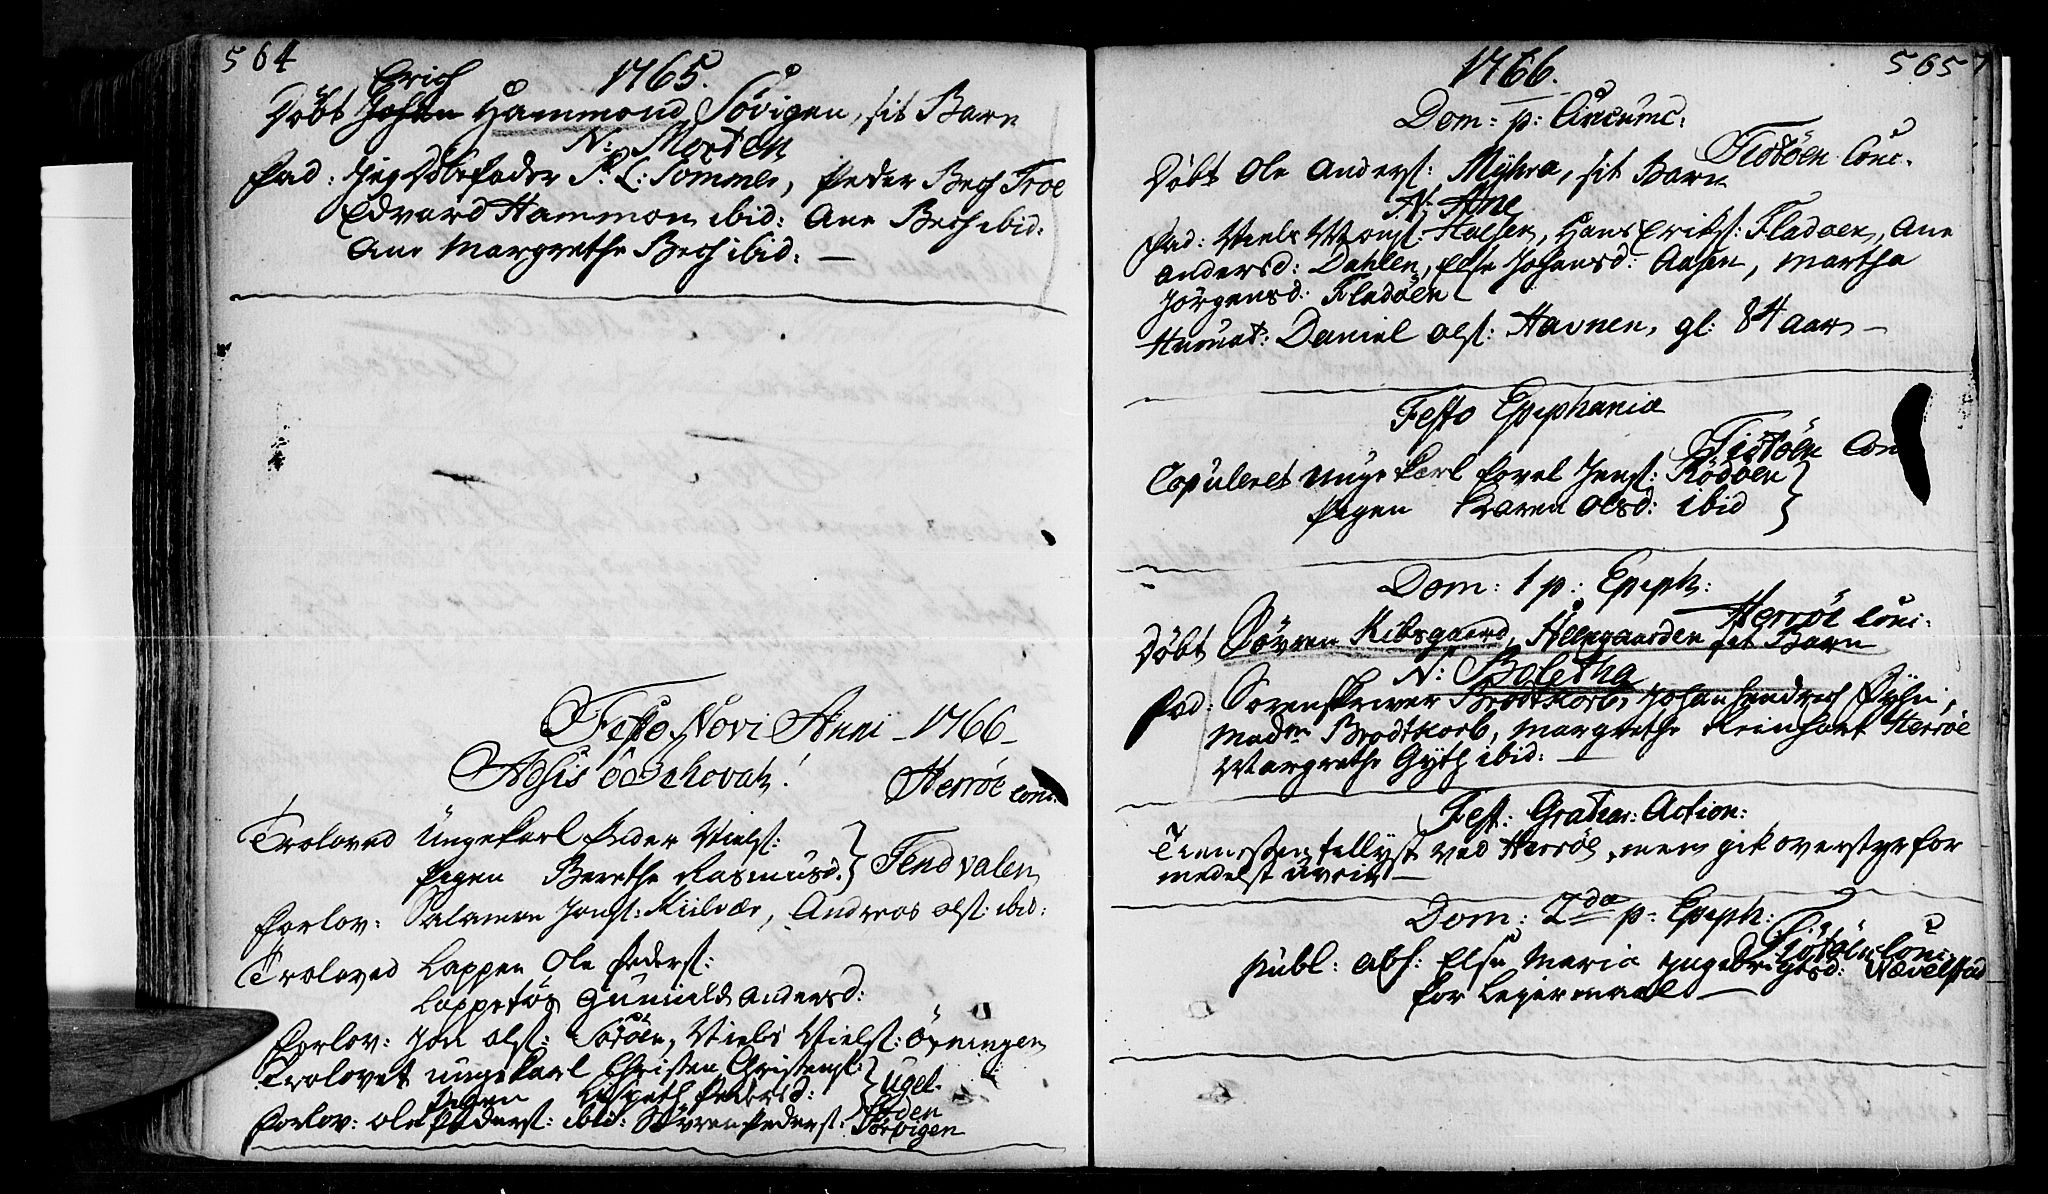 564
1765.
Erich
Döbt Johan Hammond Sövigen, sit Barn
N: Morten
Fad: Jeg Döbefader P. L: Sommer, Peder Bech Troe
Edvard Hammon ibid: Ane Bech ibid:
Ane Margrethe Bech ibid: —
Festo Novi Anni - 1766 -
Adsis ô Jehovah!
Herröe Conc.
Troloved Ungekarl Peder Niels:
Pigen Berethe Rasmusd. } Tendvalen
Forlov: Salamon Jons: Kiilvær, Andreas Ols: ibid:
Troloved Lappen Ole Peders:
Lappetös Gunnild Andersd:
Forlov: Jon Ols: Soröen, Niels Niels: Öxningen
Trolovet ungekarl Christen Christens:
Pigen Lisbeth Pedersd: } Uget.
Forlov: Ole Peders: ibid: Sövren Peders:
565
1766.
Dom: p: Circumc:
Tiötöen Conc.
Döbt Ole Anders: Myhra, sit Barn
N: Ane
Fad: Niels Mons: Holsen, Hans Eriks: Fladöen, Ane
Andersd: Dahlen, Else Johansd: Aasen, Martha
Jörgensd: Fladöen
Humat: Daniel Ols: Havnen, gl: 84 aar —
Festo Epiphania
Tiötöen Con
Copuleret ungekarl Povel Jens: Rödöen
Pigen Karen Olsd: ibid }
Dom: 1 p: Epiph:
Herröe Conc.
Döbt Sövren Kibsgaard, Steengaarden sit Barn
N: Boletha
Fad: Sorenskriver Brodtkorb, Johan Hendrich
Madm Brodtkorb, Margrethe Reinhart Herröe
Margrethe Gyth ibid: —
Fest: Gratiar: Action:
Tienesten tellyst ved Herröe, mem gik overstyr for
medelst uveir —
Dom: 2da p: Epiph:
Tiötöen Conc.
publ: abs: Else Maria Ingebrigtsd: Nævelstad
for Legermaal —